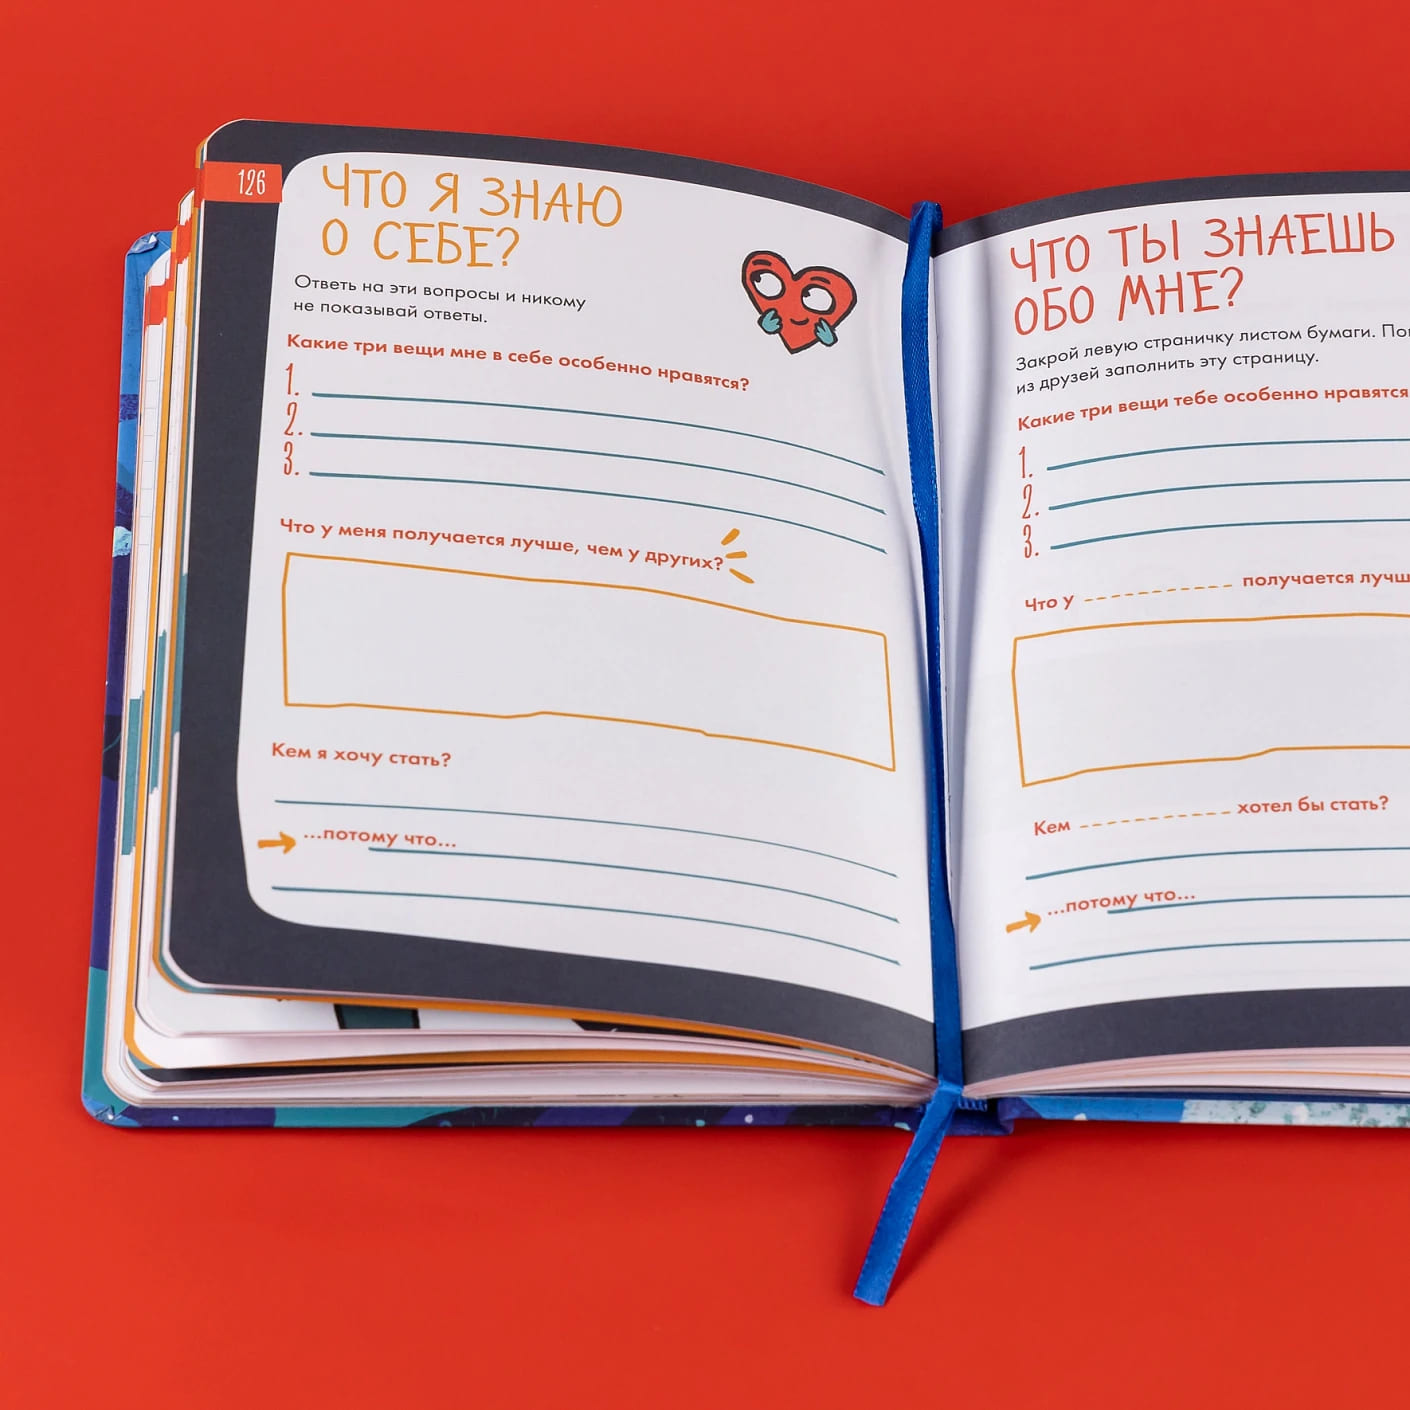 126
ЧТО Я ЗНАЮ
О СЕБЕ?
Ответь на эти вопросы и никому
не показывай ответы.
Какие три вещи мне в себе особенно нравятся?
1.
2.
3.
Что у меня получается лучше, чем у других?
Кем я хочу стать?
...потому что...
ЧТО ТЫ ЗНАЕШЬ
ОБО МНЕ?
Закрой левую страничку листом бумаги.
из друзей заполнить эту страницу.
Какие три вещи тебе особенно нравятся
1.
2.
3.
Что у получается
Кем хотел бы стать?
...потому что...